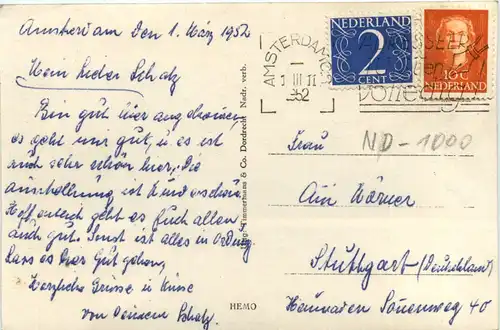 Amsterdam den 1. März 1952
Mein lieber Schatz
Bin gut hier angekommen,
es geht mir gut, u. es ist
auch sehr schön hier, die
Ausstellung ist wunderschön
Hoffentlich geht es Euch allen
auch gut. Sonst ist alles in Ordnung
lass es Dir gut gehen,
Herzliche Grüsse u. Küsse
von Deinem Schatz.
Timmermans & Co. Dordrecht Nadr. verb.
HEMO
AMSTERDAM
1 III 11
52
NEDERLAND
2
CENT
10 C
NEDERLAND
ND-1000
Frau
Körner
Stuttgart (Deutschland)
Sonnenweg 40